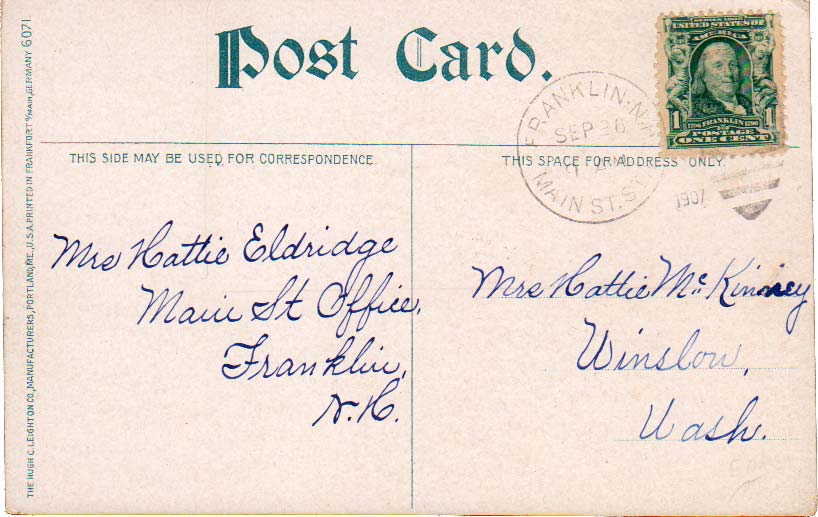 Post Card.
SERIES 1902
UNITED STATES OF
AMERICA
1 1
1706 FRANKLIN 1790
POSTAGE
ONE CENT
FRANKLIN. N.H.
SEP 26
9 AM
MAIN ST. ST
1907
THIS SIDE MAY BE USED FOR CORRESPONDENCE.
THIS SPACE FOR ADDRESS ONLY.
Mrs Hattie Eldridge
Main St Office,
Franklin,
N.H.
Mrs Hattie McKinney
Winslow,
Wash.
THE HUGH C. LEIGHTON CO., MANUFACTURERS, PORTLAND, ME., U.S.A. PRINTED IN FRANKFORT o/MAIN, GERMANY 6071.